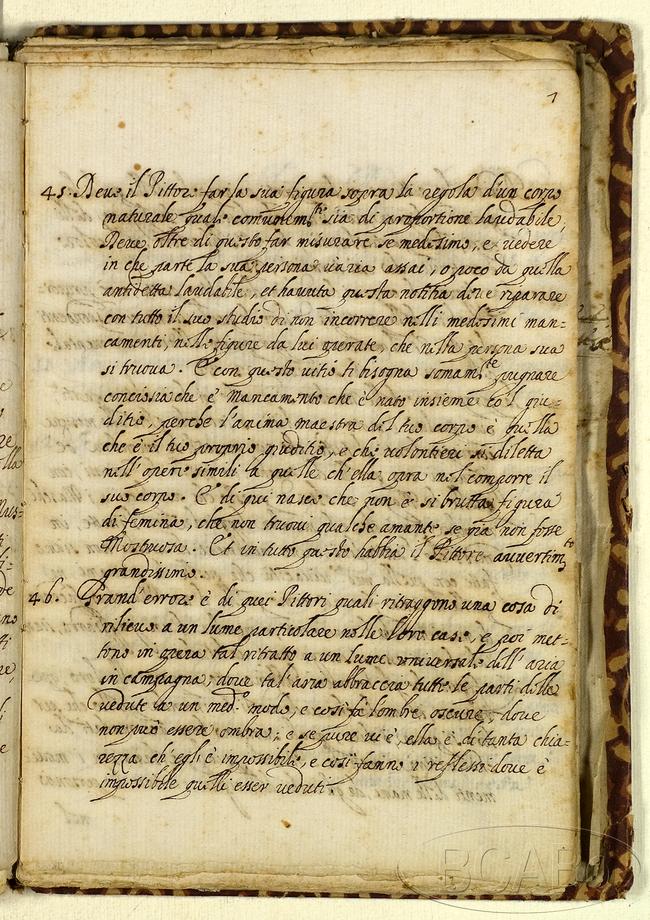 7
45. Deve il Pittore far la sua figura sopra la regola d'un corpo
naturale quale comunem.te sia di proportione laudabile,
Deve oltre di questo far misurare se medesimo, e vedere
in che parte la sua persona varia assai, o poco da quella
antidetta laudabile, et havuta questa notitia deve riparare
con tutto il suo studio di non incorrere nelli medesimi man=
camenti, nelle figure da lui operate, che nella persona sua
si truova. E con questo vitio ti bisogna somam.te pugnare
conciosia che è mancamento che è nato insieme col giu=
ditio, perche l'anima maestra del tuo corpo è quella
che è il tuo proprio giuditio, e che volontieri si diletta
nell'opere simili a quelle ch'ella opra nel comporre il
suo corpo. E di qui nasce che non è si brutta figura
di femina, che non truovi qualche amante se già non fosse
Mostuosa. Et in tutto questo habbia il Pittore avvertim.to
grandissimo.
46. Grand'errore è di quei Pittori quali ritraggono una cosa di
rilievo a un lume particolare nelle loro case, e poi met=
tono in opera tal ritratto a un lume universale dell'aria
in campagna, dove tal'aria abbraccia tutte le parti delle
vedute à un med.o modo, e così fà l'ombre oscure, dove
non può essere ombra; e se pure vi è, ella è di tanta chia=
rezza ch'egli è impossibile, e così fanno i reflessi dove è
impossibile quelli esser veduti.
BCABo